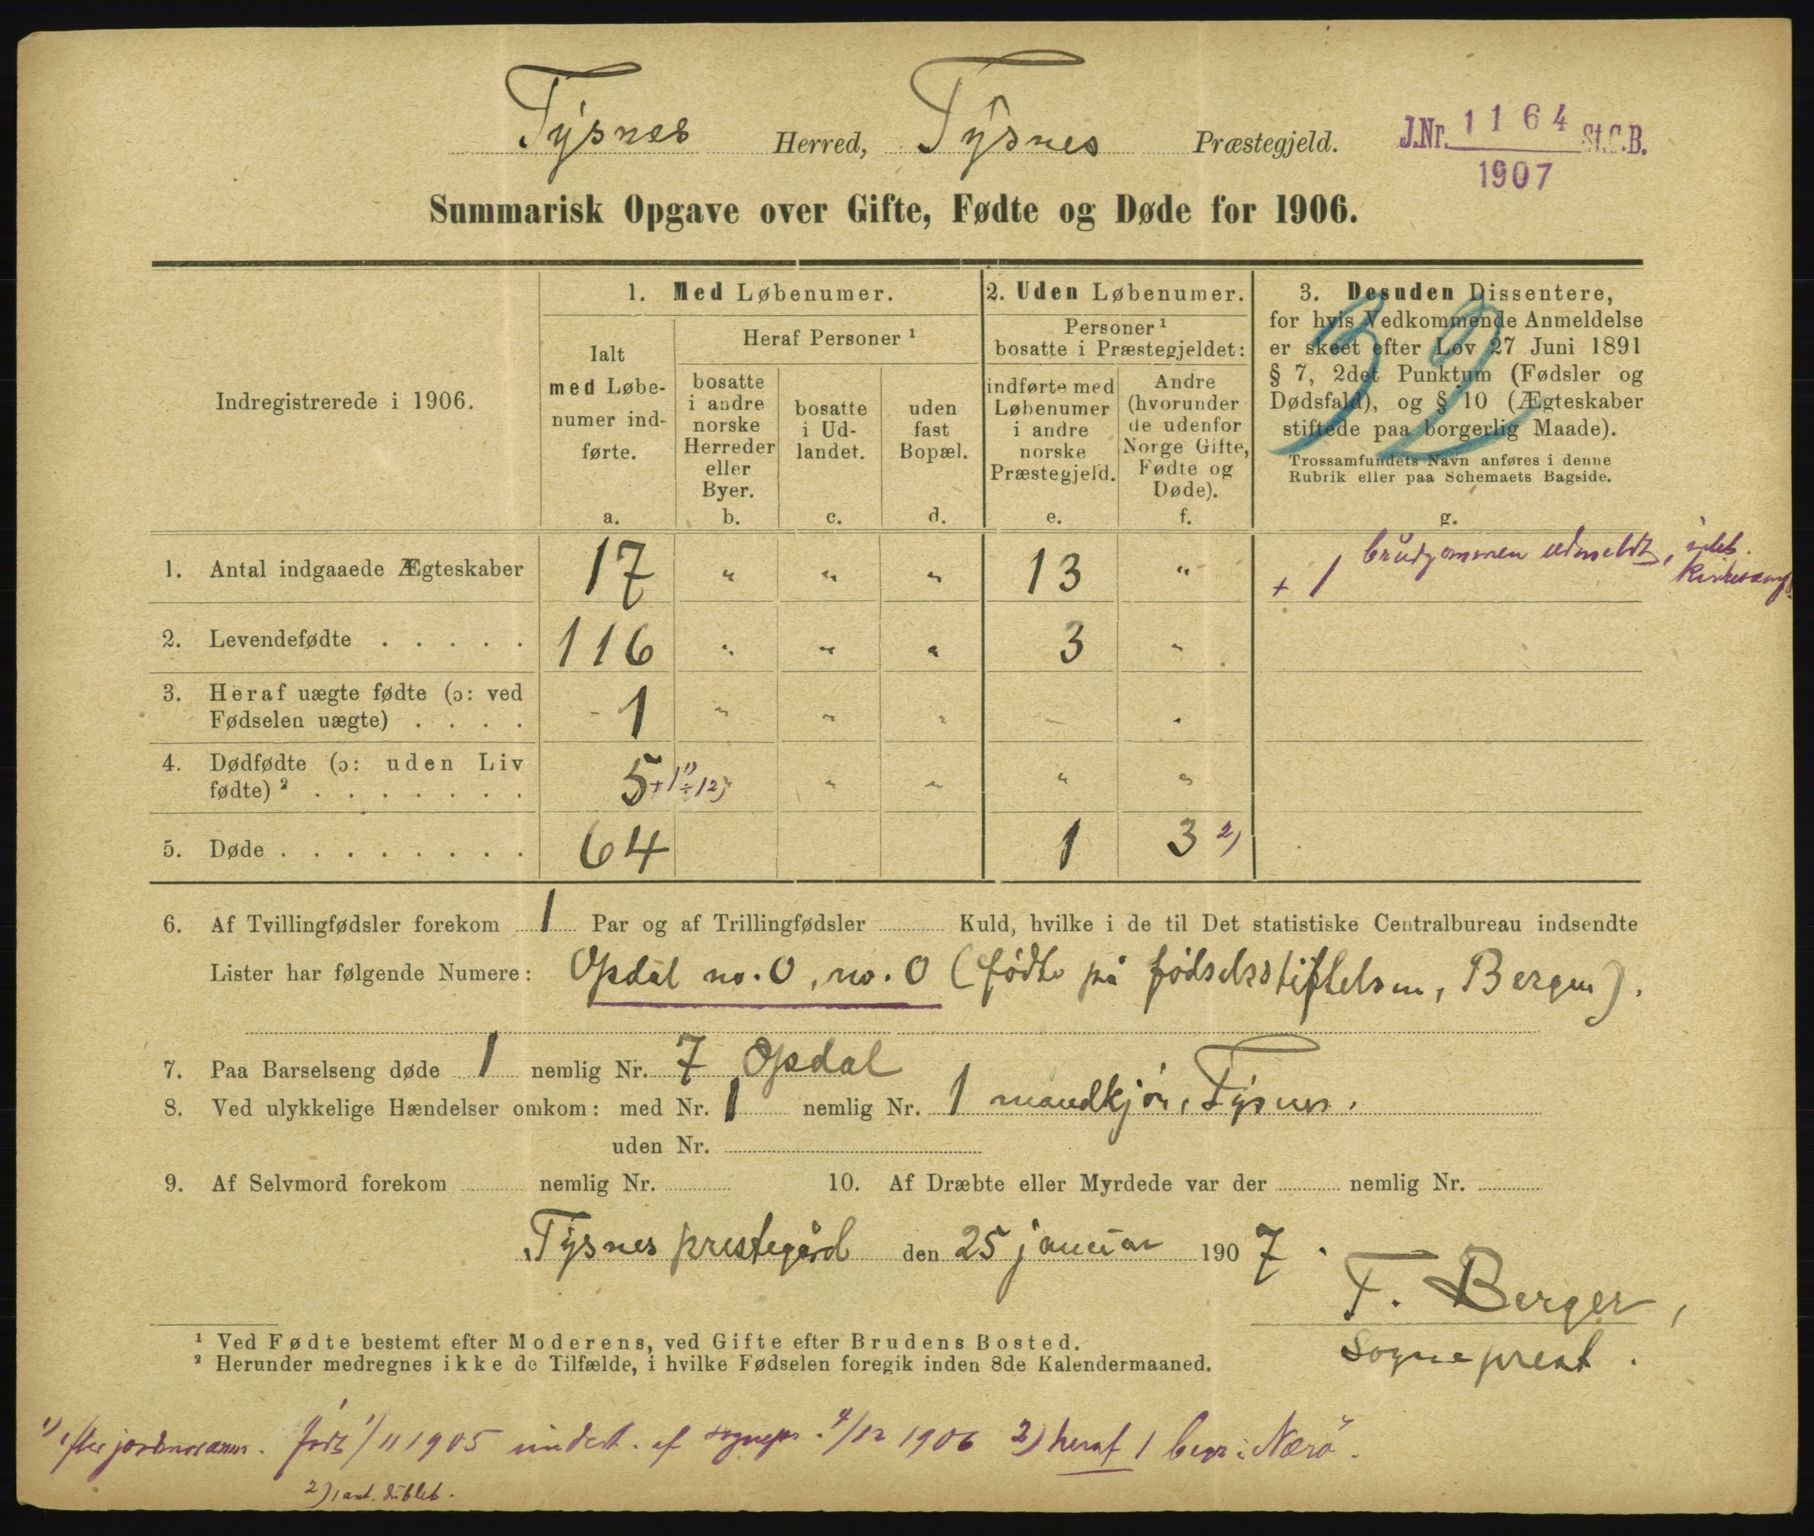 Tysnes Herred, Tysnes Præstegjeld.
J.Nr. 1164 St.C.B.
1907
Summarisk Opgave over Gifte, Fødte og Døde for 1906.
Indregistrerede i 1906.
1. Med Løbenumer.
Ialt
med Løbe-
numer ind-
førte.
a.
Heraf Personer ¹
bosatte
i andre
norske
Herreder
eller
Byer.
b.
bosatte
i Ud-
landet.
c.
uden
fast
Bopæl.
d.
2. Uden Løbenumer.
Personer ¹
bosatte i Præstegjeldet:
indførte med
Løbenumer
i andre
norske
Præstegjeld.
e.
Andre
(hvorunder
de udenfor
Norge Gifte,
Fødte og
Døde).
f.
3. Desuden Dissentere,
for hvis Vedkommende Anmeldelse
er skeet efter Lov 27 Juni 1891
§ 7, 2det Punktum (Fødsler og
Dødsfald), og § 10 (Ægteskaber
stiftede paa borgerlig Maade).
Trossamfundets Navn anføres i denne
Rubrik eller paa Schemaets Bagside.
g.
32
1. Antal indgaaede Ægteskaber 17 " " " 13 " + 1 brudgommen udmeldt,
2. Levendefødte . . . . . 116 " " " 3 "
3. Heraf uægte fødte (ɔ: ved
Fødselen uægte) . . . . - 1 " " " - "
4. Dødfødte (ɔ: uden Liv
fødte) ² . . . . . . . 5 +1 ¹) ÷1 2) " " " "
5. Døde . . . . . . . . 64 1 3 2)
6. Af Tvillingfødsler forekom 1 Par og af Trillingfødsler Kuld, hvilke i de til Det statistiske Centralbureau indsendte
Lister har følgende Numere: Opdal no. 0, no. 0 (fødte på fødselsstiftelsen, Bergen).
7. Paa Barselseng døde 1 nemlig Nr. 7 Opdal
8. Ved ulykkelige Hændelser omkom: med Nr. 1 nemlig Nr. 1 mandkjøn, Tysnes.
uden Nr.
9. Af Selvmord forekom nemlig Nr. 10. Af Dræbte eller Myrdede var der nemlig Nr.
Tysnes prestegård den 25 januar 1907.
F. Berger,
Sogneprest.
¹ Ved Fødte bestemt efter Moderens, ved Gifte efter Brudens Bosted.
² Herunder medregnes ikke de Tilfælde, i hvilke Fødselen foregik inden 8de Kalendermaaned.
¹) efter født 1/11 1905 af sognepr. 4/12 1906 2) heraf 1 begr. i Nærö.
2) 1 ant. dublet.